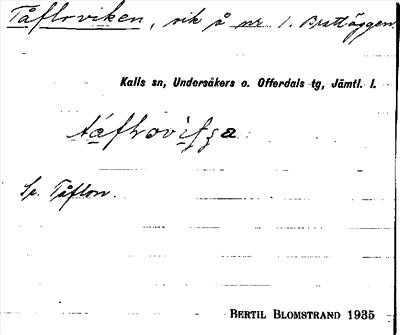 Tåfloviken, vik å nr l. Brattäggen
Kalls sn, Undersåkers o. Offerdals tg, Jämtl. l.
Se. Tåflon.
BERTIL BLOMSTRAND 1935